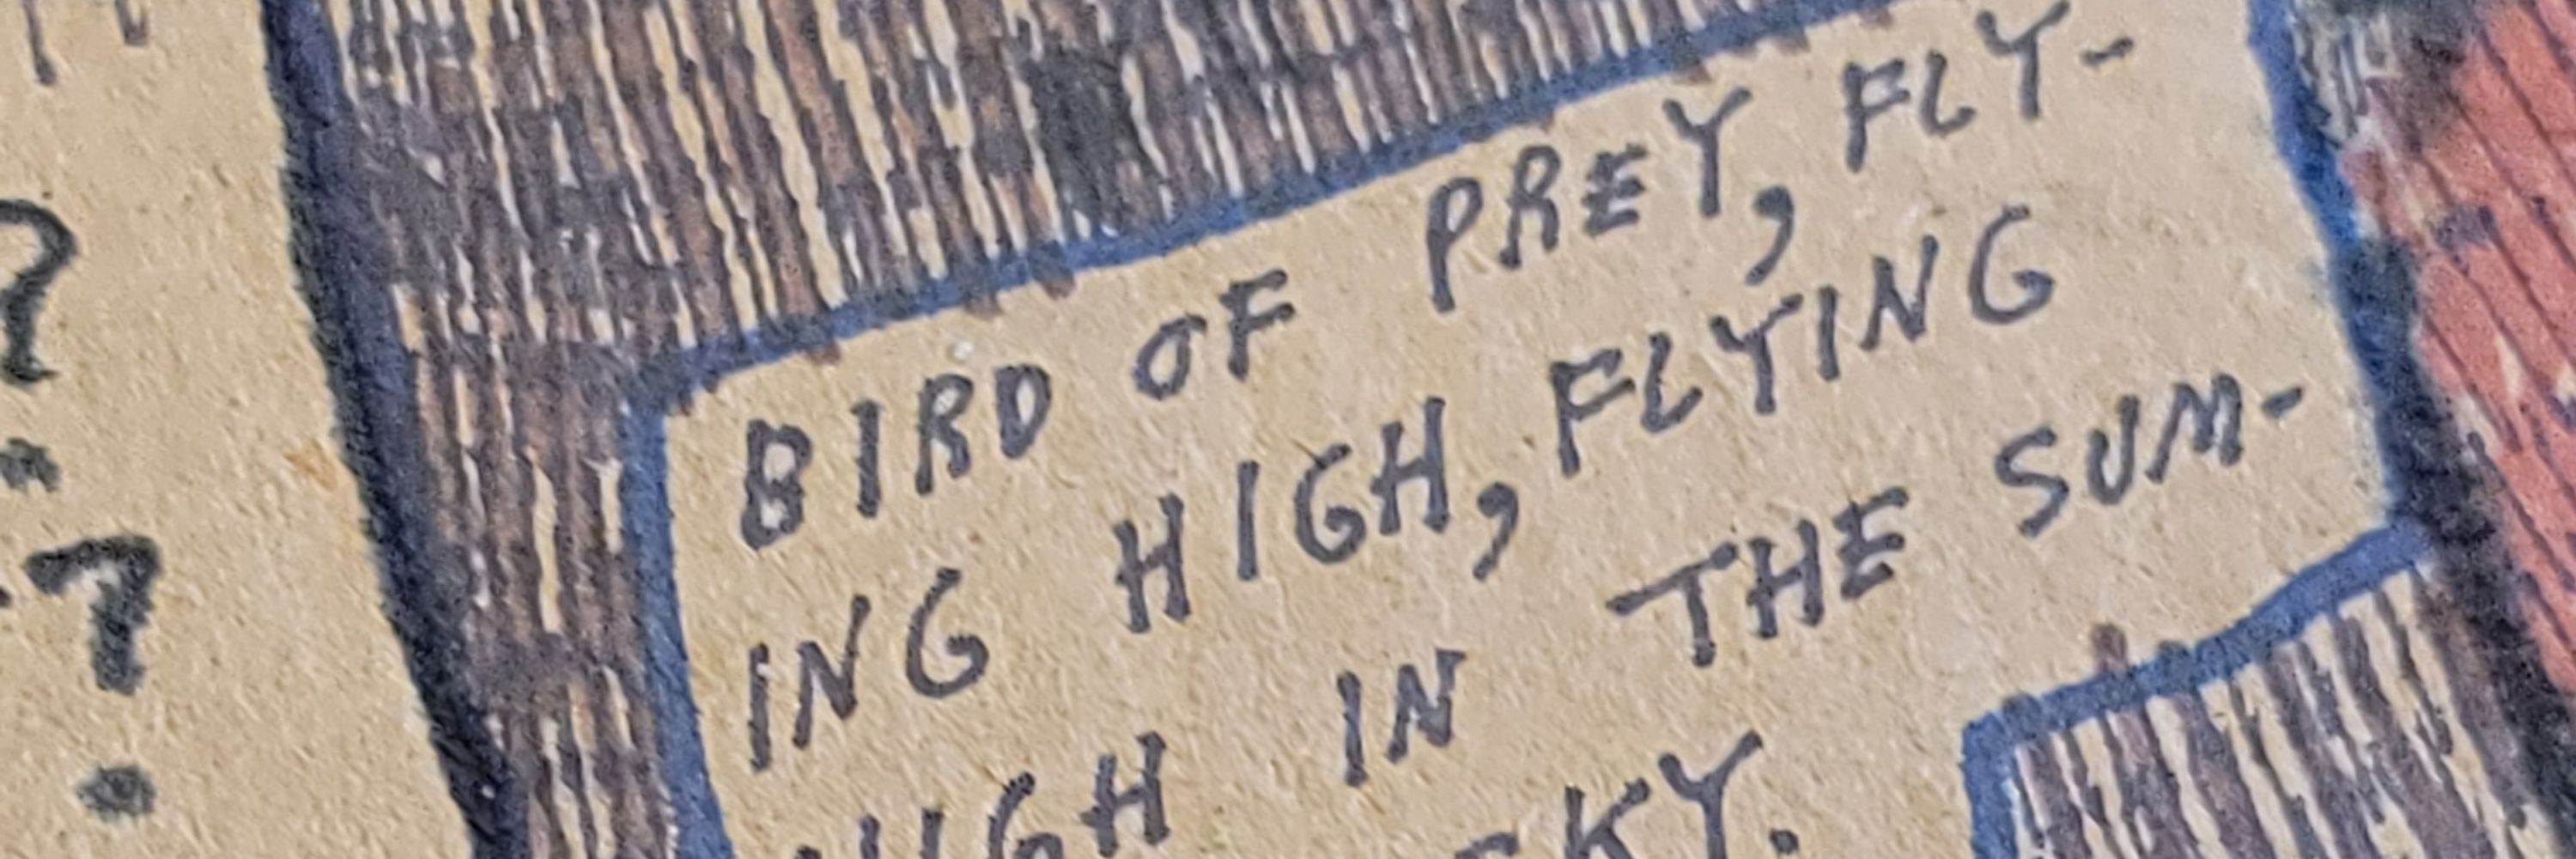 BIRD OF PREY, FLY-
ING HIGH, FLYING
HIGH IN THE SUM-
SKY.
?
?